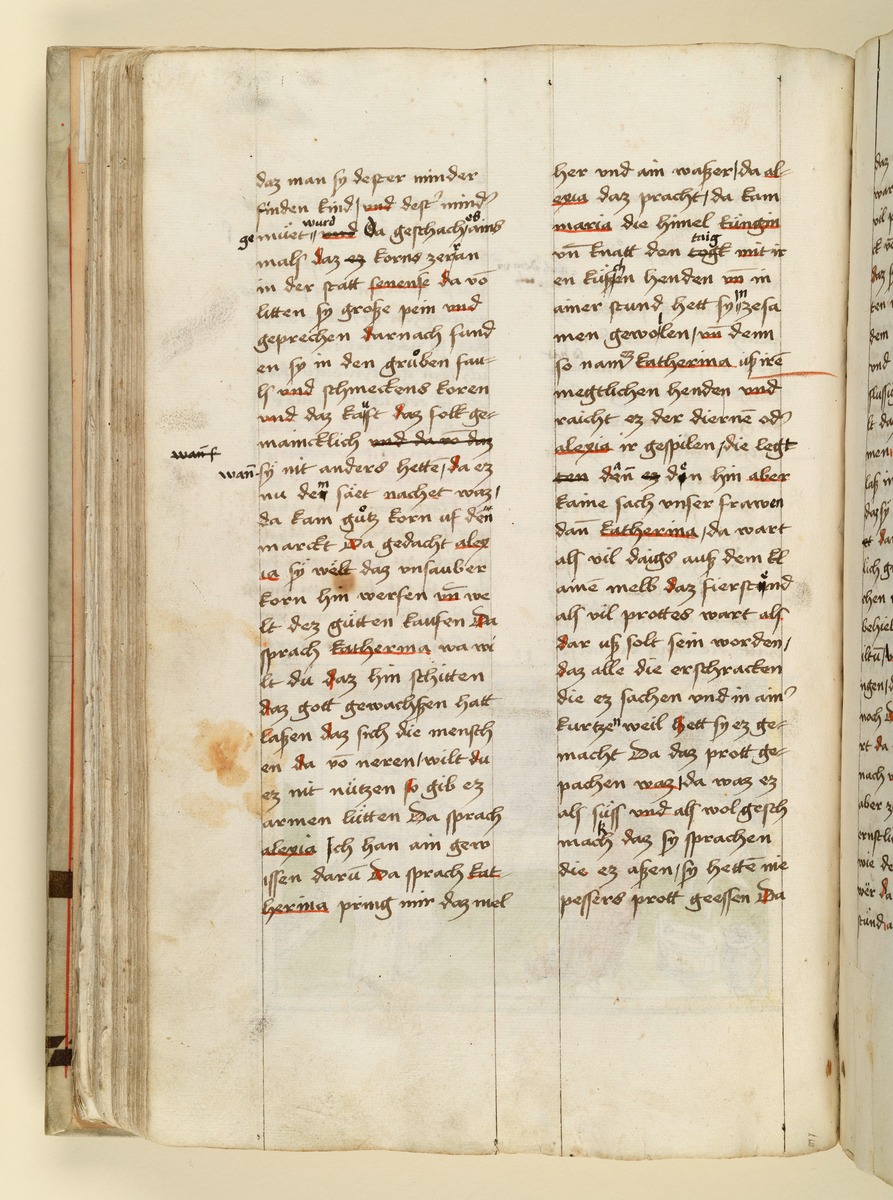 daz man sy dester minder
finden kind / vnd dest' mind'
gemüet wurd vnd Da geschach es ains
mals daz ez korns zeran
in der statt senense da vō
litten sy große pein vnd
geprechen darnach fand
en sy in den gruͦben fau-
ls vnd schmeckens koren
vnd daz kauft daz folk ge-
maincklich vnd da vo daz
wann sy nit anders hettē / da ez
nu dem säet nachet waz /
da kam guͦtz korn uf den
marckt Da gedacht alex
ia sy welt daz vnsauber
korn hin werfen vn̄ we
lt dez gütten kaufen Da
sprach katherina wa wi
lt du daz hin schitten
daz gott gewachßen hatt
laßen daz sich die mensch
en da vo neren / wilt du
ez nit nützen so gib ez
armen lütten Da sprach
alexia Ich han ain gew
issen darū Da sprach kat-
herina pring mir daz mel
her vnd ain waßer / da al-
exia daz pracht / da kam
maria die himel küngin
vn̄ knatt den togk taig mit ir
en küschen henden vn̄ in
ainer stund hett sy im zesa
men gewollen / vn̄ denn
so nam katherina uß irē
megtlichen henden vnd
raicht ez der diernē od'
alexia ir gespilen / die legt
ten den ez den hin aber
kaine sach vnser frawen
dan̄ katherina / da wart
als vil daigs auß dem kl
ainē melb daz fierstund
als vil prottes wart als
dar uß solt sein worden /
daz alle die erschracken
die ez sachen vnd in ain'
kurtzen weil hett sy ez ge-
macht Da daz prott ge-
pachen waz / da waz ez
als süss vnd als wol gesch
mack daz sy sprachen
die ez aßen / sy hettē nie
pessers prott geessen Da